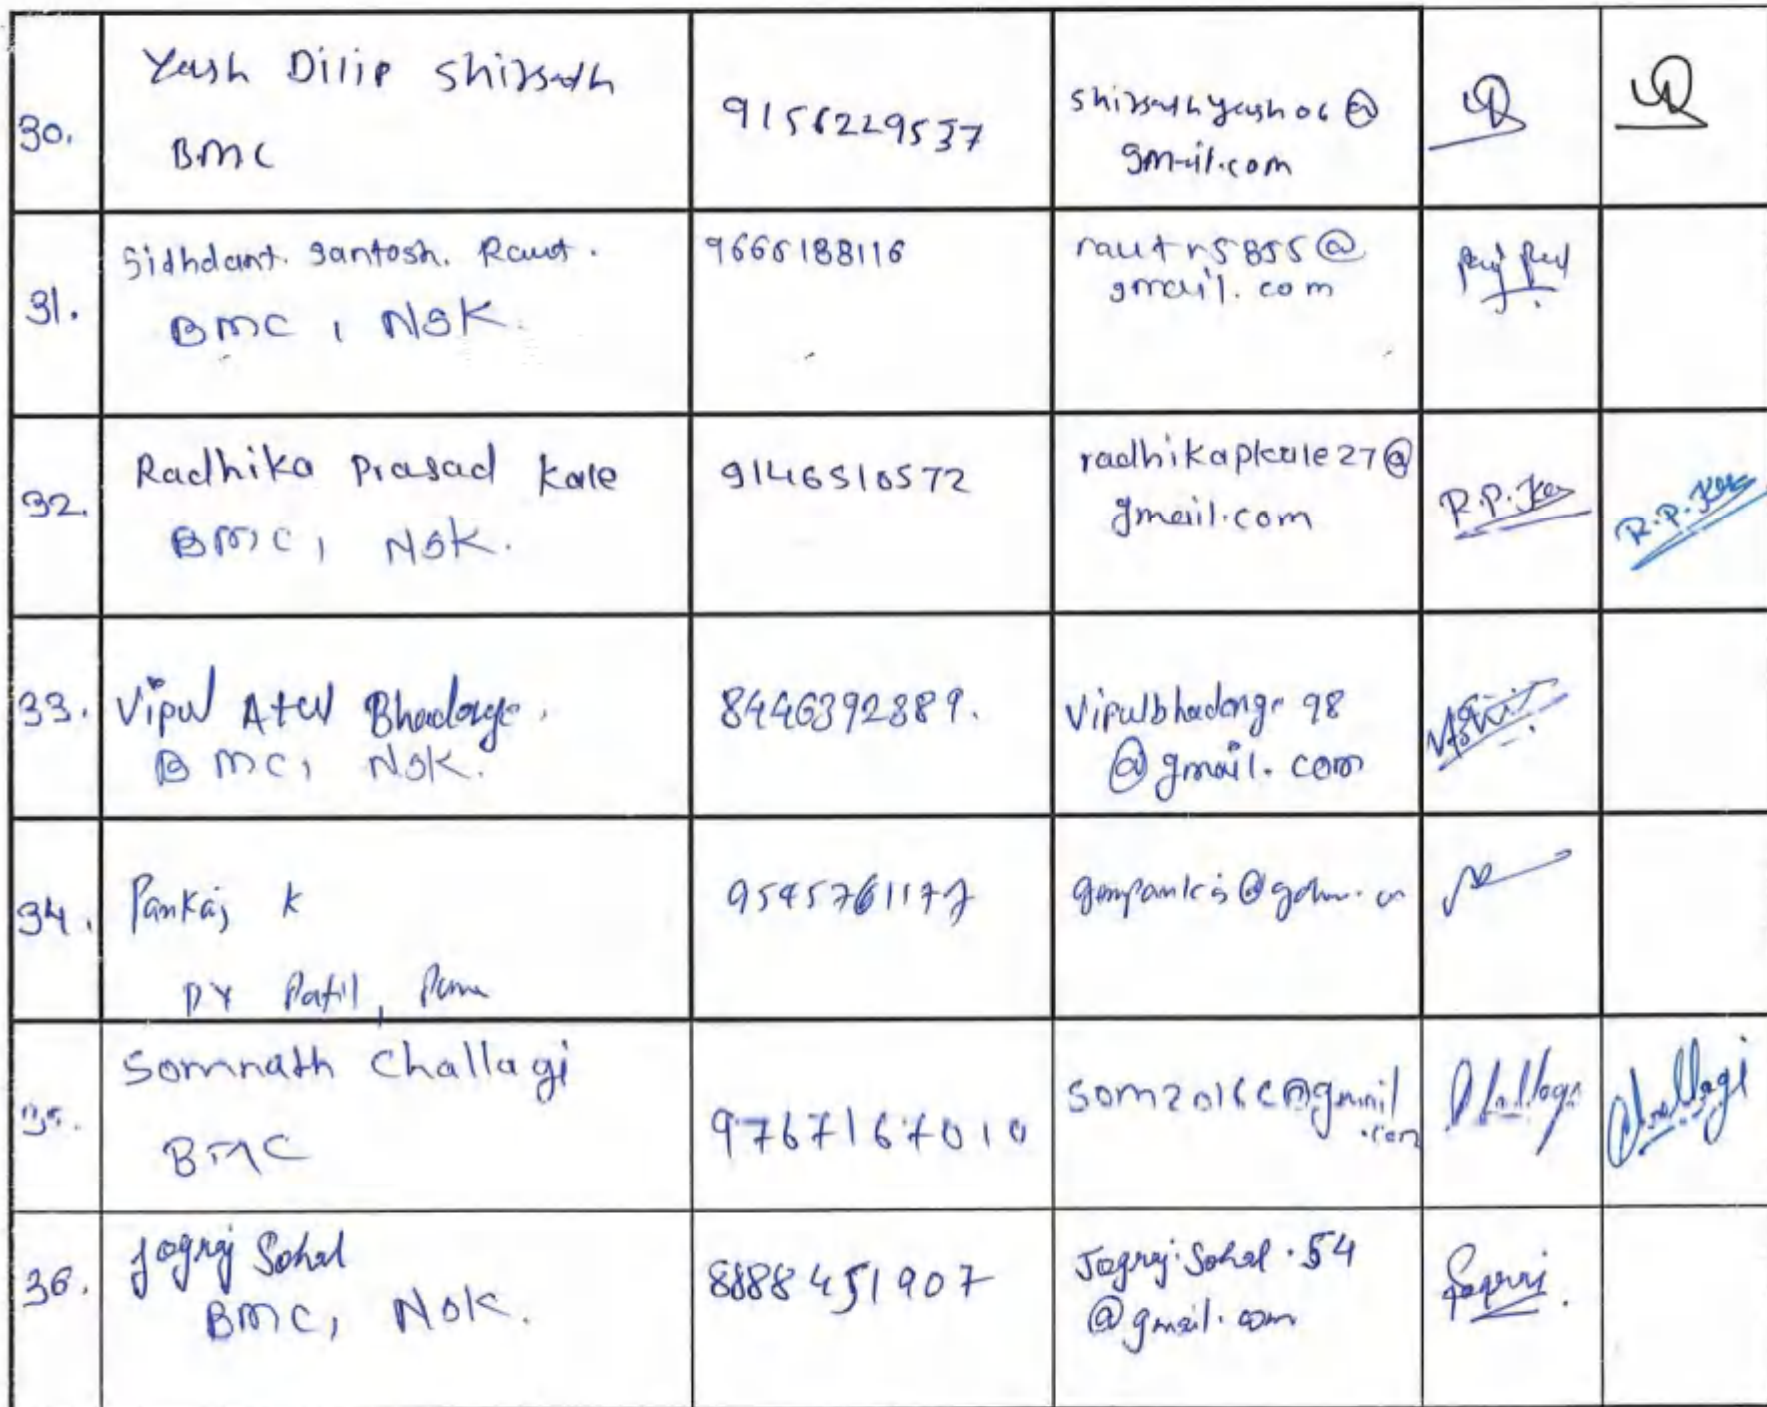 30.
Yash Dilip Shirsath
BMC
9156229537
shirsathyash06@
gmail.com
31.
Sidhdant. Santosh. Raut.
BMC, NSK.
9665188116
rautr5855@
gmail.com
32.
Radhika Prasad Kale
BMC, NSK.
9146510572
radhikapkale27@
gmail.com
R.P. Kale
R.P. Kale
33.
Vipul Atul Bhadange.
BMC, NSK.
8446392889.
Vipulbhadange98
@gmail.com
34.
Pankaj K
DY Patil, Pune
9545761177
35.
Somnath Challagi
BMC
9767167010
som2016c@gmail
.com
Challagi
Challagi
36.
Jograj Sohal
BMC, NSK.
8888451907
Jograj.Sohal.54
@gmail.com